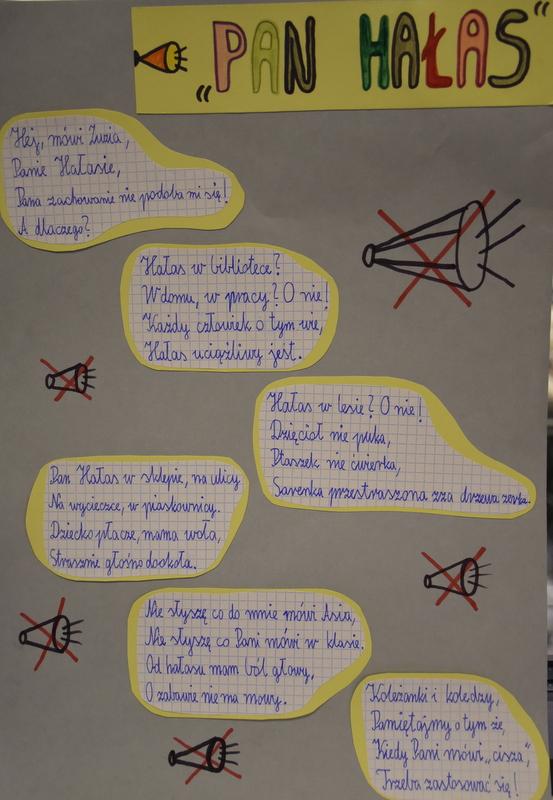 „PAN HAŁAS“
Hej, mówi Zuzia,
Panie Hałasie,
Pana zachowanie nie podoba mi się!
A dlaczego?
Hałas w bibliotece?
W domu, w pracy? O nie!
Każdy człowiek o tym wie,
Hałas uciążliwy jest.
Hałas w lesie? O nie!
Dzięcioł nie puka,
Ptaszek nie ćwierka,
Sarenka przestraszona zza drzewa zerka.
Pan Hałas w sklepie, na ulicy
Na wycieczce, w piaskownicy.
Dziecko płacze, mama woła,
Strasznie głośno dookoła.
Nie słyszę co do mnie mówi Asia,
Nie słyszę co Pani mówi w klasie.
Od hałasu mam ból głowy,
O zabawie nie ma mowy.
Koleżanki i koledzy,
Pamiętajmy o tym że,
Kiedy Pani mówi „cisza”,
Trzeba zastosować się!